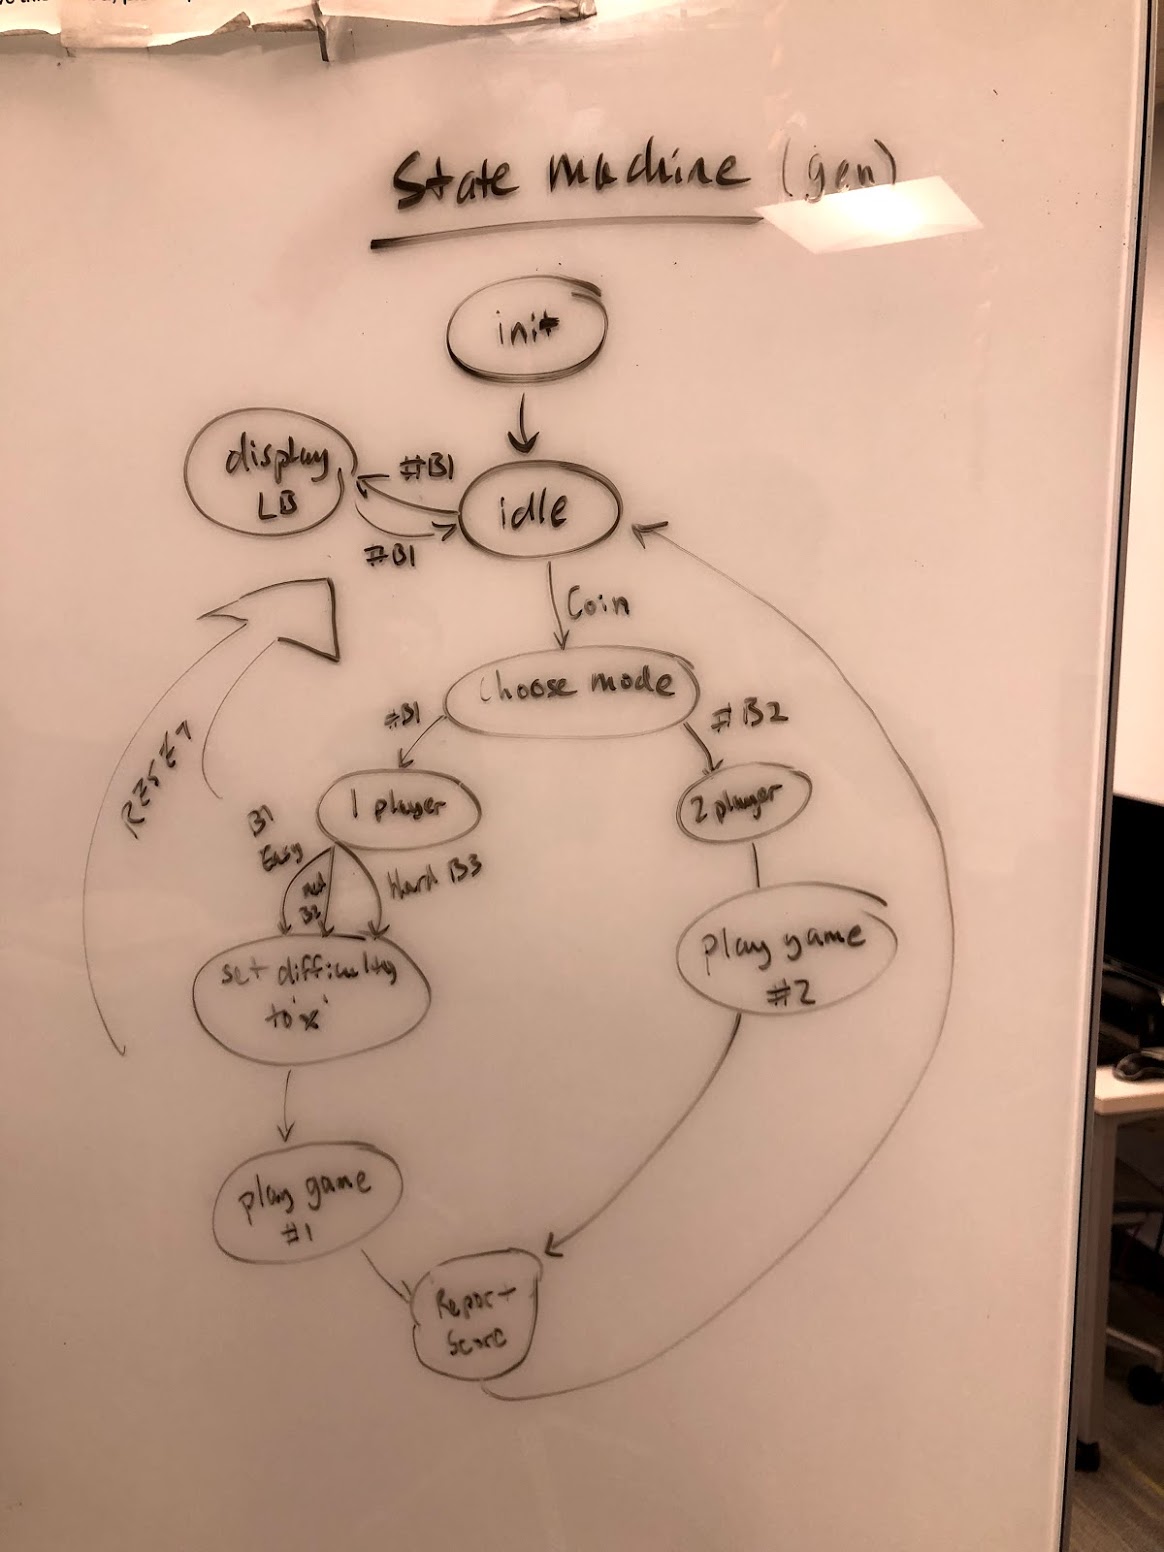 State machine (gen)
init
display
LB
#B1
idle
#B1
Coin
choose mode
#B1
#B2
RESET
1 player
2 player
B1
Easy
B2
Hard B3
set difficulty
to 'x'
play game
#2
play game
#1
Report
Score